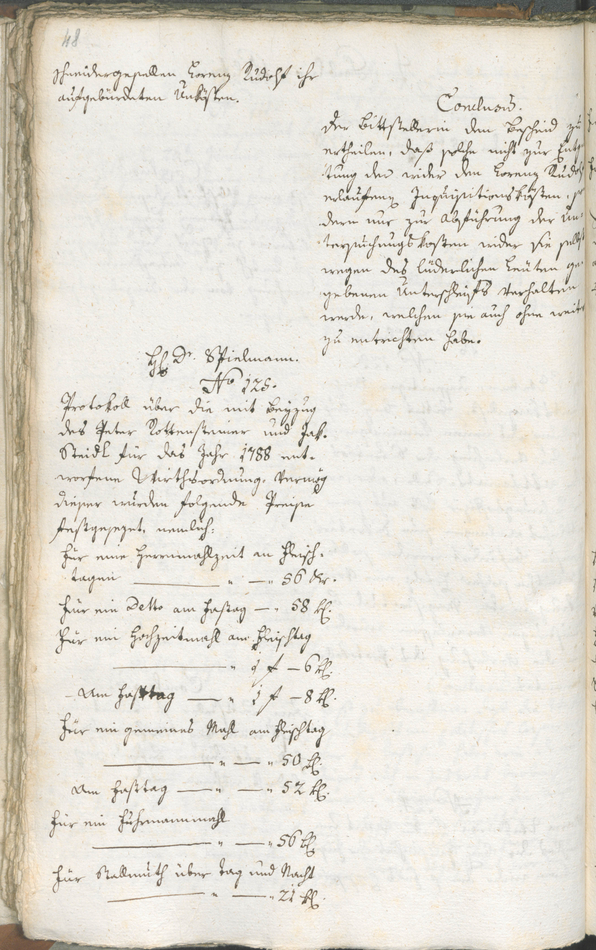 48
schneidergesellen Lorenz Rudolf ihr
aufgebürdeten Unkösten.
Conclusum.
Der Bittstellerin den Bescheid zu
ertheilen, daß solche nicht zur Entrich
tung der wider den Lorenz Rudolf
erlaufenen Inquisitionskosten, son
dern nur zur Abführung der Un-
tersuchungskosten wider sie selbst
wegen des lüderlichen Leuten ge-
gebenen Unterschleifs verhalten
werde, welchen sie auch ohne weite
zu entrichten habe.
H. Dr. Spielmann.
No 125.
Protokoll über die mit Beyzug
des Peter Rottensteiner und Jak.
Steidl für das Jahr 1788 ent-
worfene Wirthsordnung. Vermög
dieser wurden folgende Preise
festgesezet, nemlich:
Für eine Herrnmahlzeit an Fleisch-
tagen — " — " 56 Kr.
Für ein Detto am Fasttag — " 58 kr.
Für ein Hochzeitmahl am Fleischtag
— " 1 f — 6 kr.
Am Fasttag — " 1 f — 8 kr.
Für ein gemeines Mahl am Fleischtag
— " — " 50 kr.
Am Fasttag — " — " 52 kr.
Für ein Fuhrmannmahl
— " — " 56 kr.
Für Stallmuth über Tag und Nacht
— " — " 21 kr.